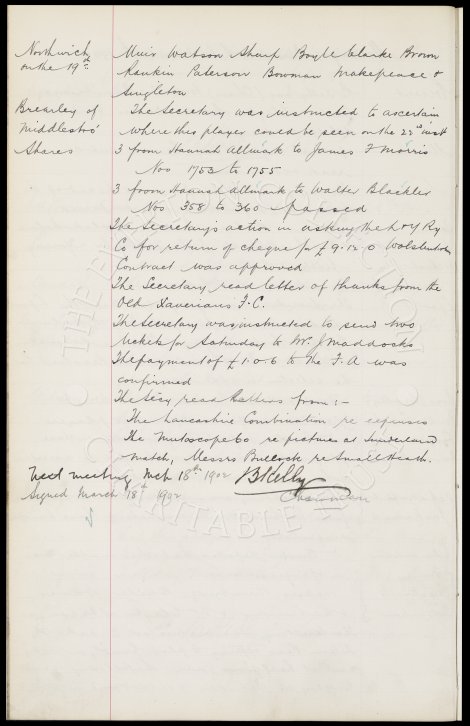 Northwich on the 19th
Muir Watson Sharp Boyle Clarke Brown
Rankin Paterson Bowman Makepeace &
Singleton
Brearley of Middlesbro'
The Secretary was instructed to ascertain
where this player could be seen on the 22nd inst
Shares
3 from Hannah Allmark to James J Morris
Nos 1753 to 1755
3 from Hannah Allmark to Walter Blackler
Nos 358 to 360 passed
The Secretary's action in asking the L & Y Ry
Co for return of cheque for £9.12.0 Wolstenholm
Contract was approved
The Secretary read letter of thanks from the
Old Xaverians F.C.
The Secretary was instructed to send two
tickets for Saturday to Mr. J Maddocks
The payment of £1.0.6 to the F.A was
confirmed
The Secy read letters from :-
The Lancashire Combination re expenses
The Mutoscope Co re pictures at Sunderland
match, Messrs Bullock re Small Heath.
Next meeting Mch 18th 1902
B Kelly
Signed March 18th 1902
Chairman